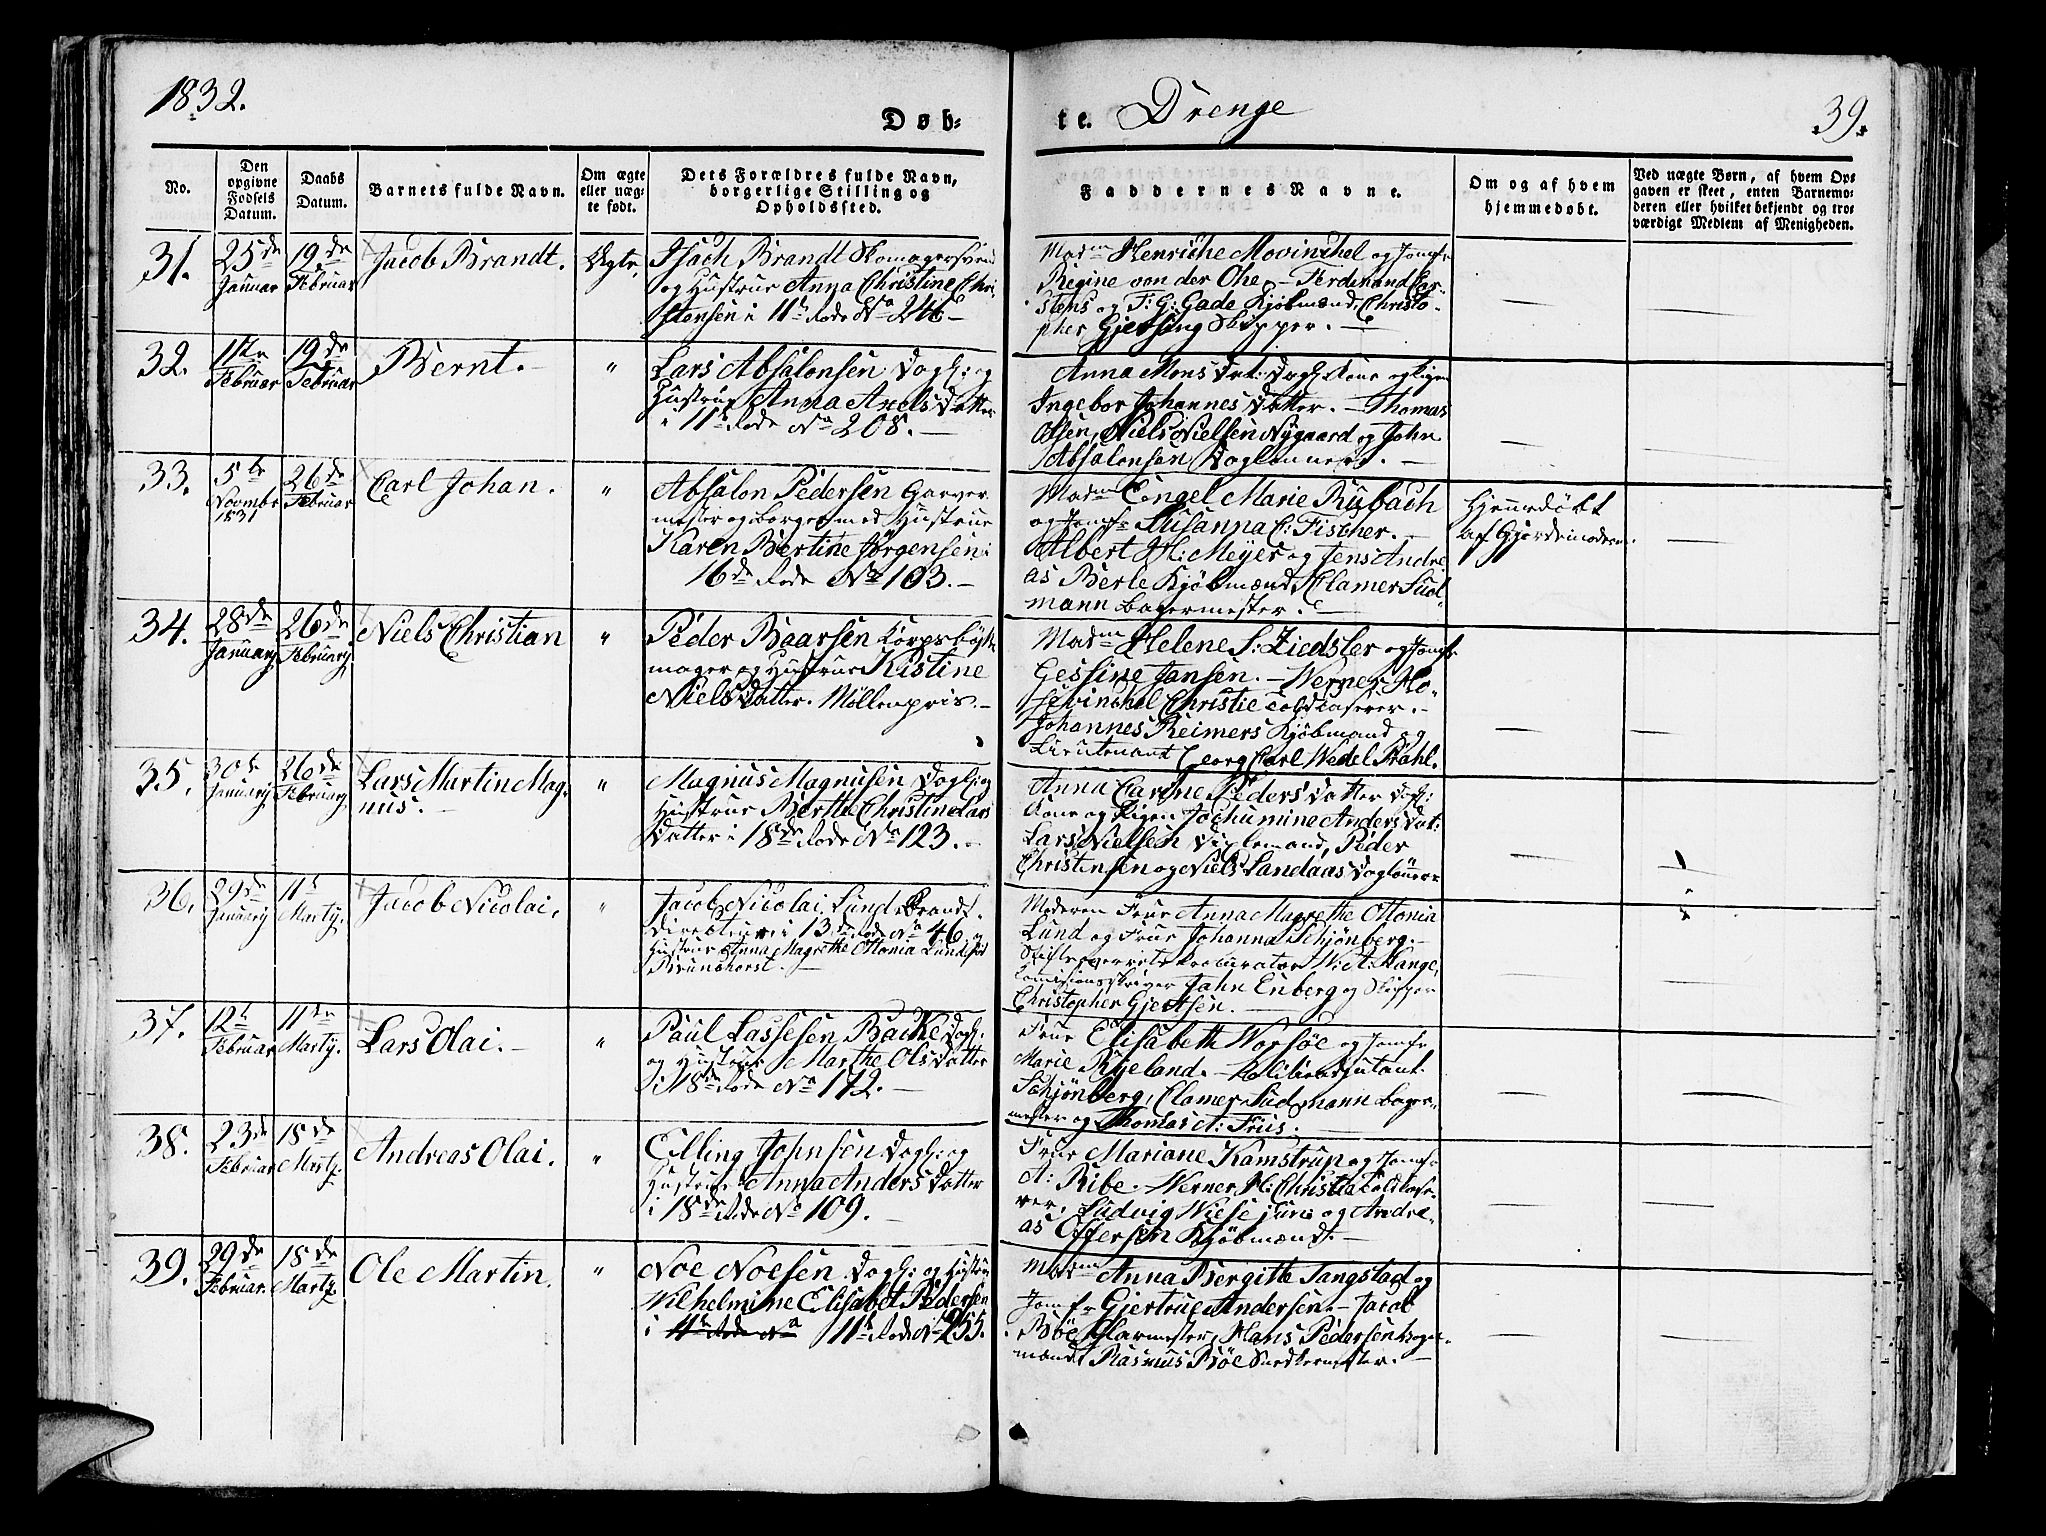 1832.
Døb-
te. Drenge
39.
No.
Den
opgivne
Fødsels
Datum.
Daabs
Datum.
Barnets fulde Navn.
Om ægte
eller uæg-
te født.
Dets Forældres fulde Navn,
borgerlige Stilling og
Opholdssted.
Faddernes Navne.
Om og af hvem
hjemmedøbt.
Ved uægte Børn, af hvem Op-
gaven er skeet, enten Barnemo-
deren eller hvilket bekjendt og tro-
værdigt Medlem af Menigheden.
31.
25de
Januar
19de
Februar
Jacob Brandt.
Ægte
Isach Brandt Skomagersvend
og Hustrue Anna Christine Chri-
stensen i 11te Rode No 216 —
Madm Henriche Movinchel og Jomfr
Regine von der Ohe, — Ferdinand Car-
stens og F: G: Gade Kjøbmænd, Christo-
pher Gjertsing Skipper. —
32.
11te
Februar
19de
Februar
Bernt. —
"
Lars Absalonsen Dagl: og
Hustrue Anna Axels Datter
i 11te Rode No 208. —
Anna Mons Dat: Dagl. Kone og Pigen
Ingebor Johannes Datter. — Thomas
Olsen, Niels Nielsen Nygaard og John
Absalonsen Daglønnere. —
33.
5te
Novmbr
1831
26de
Februar
Carl Johan.
"
Absalon Pedersen Garver
mester og borger med Hustrue
Karen Bertine Jørgensen i
16de Rode No 103. —
Madm Engel Marie Rysbach
og Jomfr Susanna C: Fischer. —
Albert H: Meyer og Jens Andre
as Berle Kjøbmænd, Clamer Süd-
mann Bagermester. —
Hjemmedøbt
af Gjordemoderen.
34.
28de
January
26de
February
Niels Christian
"
Peder Baarsen Korpsbøsse
mager og Hustrue Kistine
Niels Datter. Møllenpris. —
Madm Helene S: Ziedsler og Jomfr
Gessine Jansen. — Werner Ho-
sevinchel Christie Toldkaserer. —
Johannes Reimers Kjøbmand og
Lieutenant Georg Carl Wedel Prahl.
35.
30te
January
26de
February
Lars Martin Mag-
nus. —
"
Magnus Magnusen Dagl: og
Hustrue Berthe Christine Lars
Datter i 18de Rode No 123. —
Anna Carine Peders Datter Dagl:
Kone og Pigen Jochumine Anders Dat:
Lars Nielsen Viglemand, Peder
Christensen og Niels Landaas Dagløner
36.
29de
January
11te
Marty.
Jacob Nicolai.
"
Jacob Nicolai Lund Brandt.
Directeur i 13de Rode No 46 og
Hustrue Anna Magrethe Ottonia Lund fød
Brunchorst. —
Moderen Frue Anna Magrethe Ottonia
Lund og Frue Johanna Schjønberg. —
Stiftsoverrets Procurator W: A: Hange,
Comisionsskriver Jahn Enberg og Skipper
Christopher Gjertsen. —
37.
12te
Februar
11te
Marty.
Lars Olai. —
"
Paul Lassesen Backe Dagl:
og Hustrue Marthe Ols Datter
i 18de Rode No 112. —
Frue Elisabeth Worsøe og Jomfr
Marie Ryeland. — Politieadjutant
Schjønberg, Clamer Südmann Bager-
mester og Thomas A: Friis. —
38.
23de
Februar
18de
Marty.
Andreas Olai.
"
Elling Johnsen Dagl: og
Hustrue Anna Anders Datter
i 18de Rode No 109. —
Frue Mariane Kamstrup og Jomfr
A: Ribe. — Werner H: Christie Toldkase-
rer, Ludvig Wiese jun: og Andre-
as Offersen Kjøbmænd. —
39.
29de
Februar.
18de
Marty.
Ole Martin.
"
Noe Noesen Dagl: og Hustru
Wilhelmine Elisabet Pedersen
i 4te Rode No 11te Rode No 255.
Madm Anna Bergitte Tangstad og
Jomfr Giertrue Andersen. — Jacob
Bøe Glarmester, Hans Pedersen
mand, Rasmus Bøe Snedkermester. —